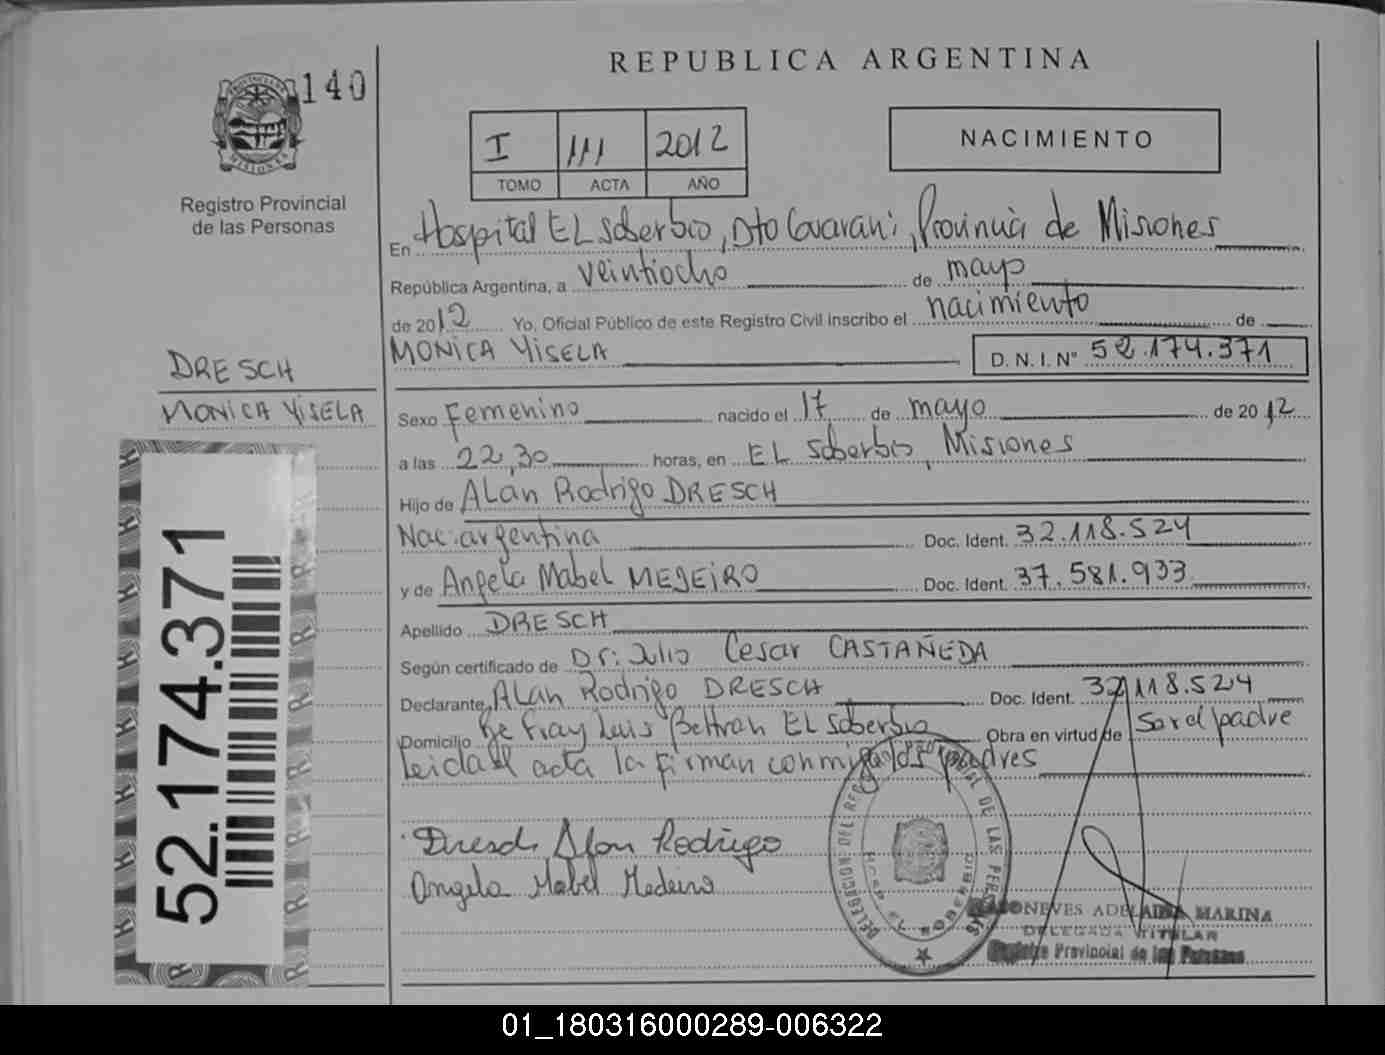 REPUBLICA ARGENTINA
140
PROVINCIA DE
MISIONES
Registro Provincial
de las Personas
I 111 2012
TOMO ACTA AÑO
NACIMIENTO
En Hospital EL Soberbio, Dto Guarani, Provincia de Misiones
República Argentina, a veintiocho de mayo
de 2012 Yo, Oficial Público de este Registro Civil inscribo el nacimiento de
MONICA YISELA D. N. I. Nº 52.174.371
DRESCH
MONICA YISELA
Sexo Femenino nacido el 17 de mayo de 2012
a las 22,30 horas, en EL Soberbio, Misiones
Hijo de ALan Rodrigo DRESCH
Nac: argentina Doc. Ident. 32.118.524
y de Angela Mabel MEDEIRO Doc. Ident. 37.581.933
Apellido DRESCH
Según certificado de Dr: Julio Cesar CASTAÑEDA
Declarante ALan Rodrigo DRESCH Doc. Ident. 32.118.524
Domicilio Fray Luis Beltran EL Soberbio Obra en virtud de Ser el padre
Leida el acta la firman conmigo los padres
52.174.371
Dresch Alan Rodrigo
Angela Mabel Medeiro
DELEGACION DEL REG. PROVINCIAL DE LAS PERSONAS
HOSP EL SOBERBIO
NEVES ADELAIDA MARINA
DELEGADA TITULAR
Registro Provincial de las Personas
01_180316000289-006322